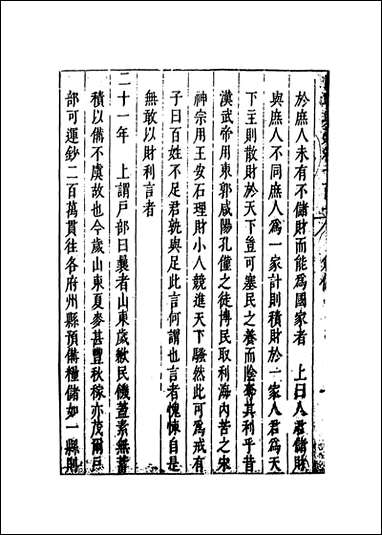 於庶人未有不儲財而能爲國家者　上曰人君儲財
與庶人不同庶人爲一家計則積財於一家人君爲天
下主則散財於天下豈可塞民之養而陰奪其利乎昔
漢武帝用東郭咸陽孔僅之徒慱民取利海內苦之宋
神宗用王安石理財小人競進天下騷然此可爲戒有
子曰百姓不足君孰與足此言何謂也言者愧悚自是
無敢以財利言者
二十一年　上謂戶部曰曩者山東歲歉民饑蓋素無蓄
積以備不虞故也今歲山東夏麥甚豐秋稼亦茂爾戶
部可運鈔二百萬貫往各府州縣預備糧儲如一縣則